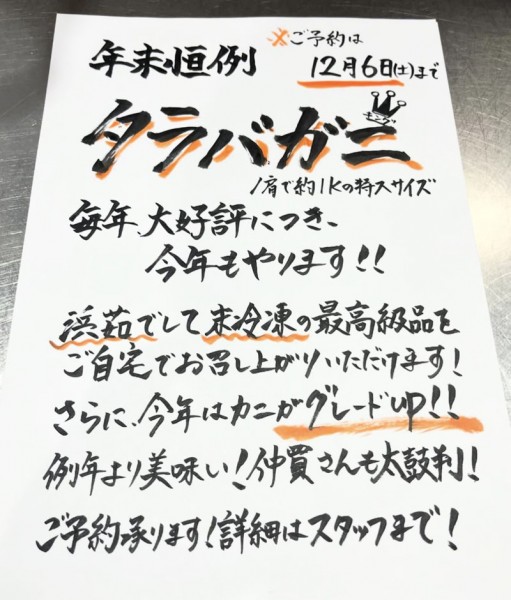 ※ご予約は
年末恒例 12月6日(土)まで
キング
タラバガニ
1肩で約1kの特大サイズ
毎年、大好評につき、
今年もやります!!
浜茹でして未冷凍の最高級品を
ご自宅でお召し上がりいただけます!
さらに、今年はカニがグレードup!!
例年より美味い!仲買さんも太鼓判!
ご予約承ります!詳細はスタッフまで!